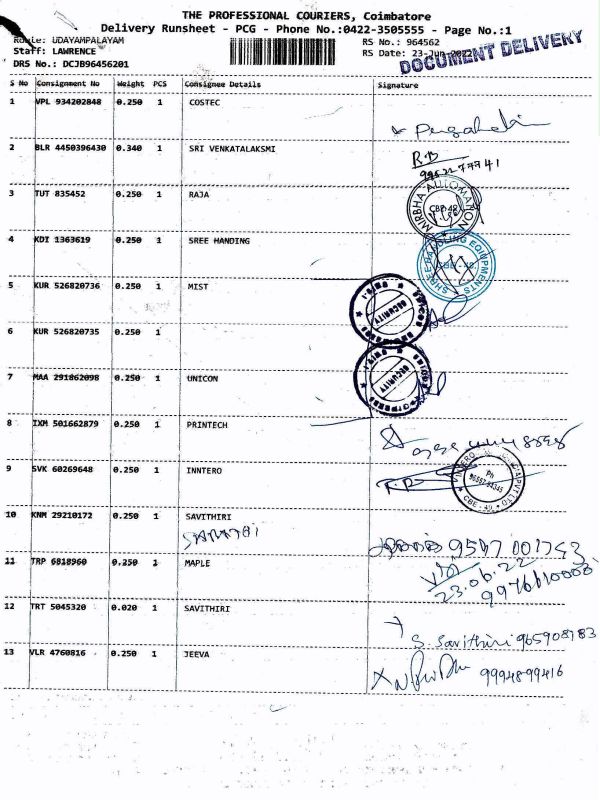 THE PROFESSIONAL COURIERS, Coimbatore
Delivery Runsheet - PCG - Phone No.:0422-3505555 - Page No.:1
Route: UDAYAMPALAYAM
Staff: LAWRENCE
DRS No.: DCJB96456201
RS No.: 964562
RS Date: 23-Jun-2022
DOCUMENT DELIVERY
S No Consignment No Weight PCS Consignee Details Signature
1 VPL 934202848 0.250 1 COSTEC
2 BLR 4450396430 0.340 1 SRI VENKATALAKSMI
R.B
3 TUT 835452 0.250 1 RAJA
MIRBHA AUTOMATION
CBE-48
4 KDI 1363619 0.250 1 SREE HANDING
SHREE HANDLING EQUIPMENTS
CBE - 49
5 KUR 526820736 0.250 1 MIST
SECURITY
6 KUR 526820735 0.250 1
7 MAA 291862098 0.250 1 UNICON
SECURITY
8 IXM 501662879 0.250 1 PRINTECH
9 SVK 60269648 0.250 1 INNTERO
Ph
CBE - 49
10 KNM 29210172 0.250 1 SAVITHIRI
11 TRP 6818960 0.250 1 MAPLE
23.06.22
12 TRT 5045320 0.020 1 SAVITHIRI
S. Savithiri
13 VLR 4760816 0.250 1 JEEVA
9994899416